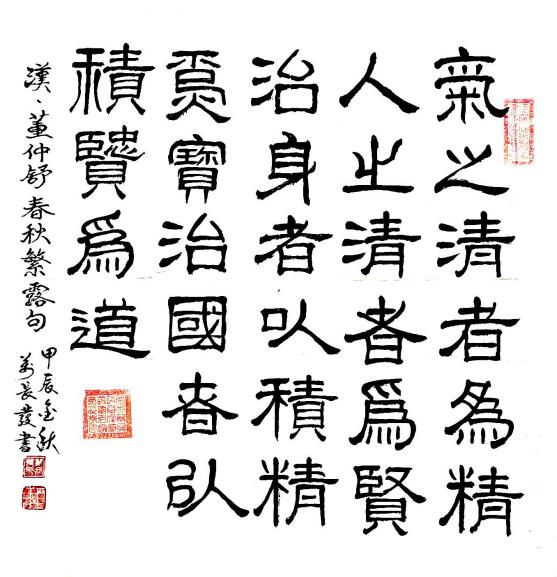 氣之清者為精
人之清者爲賢
治身者以積精
爲寶治國者以
積賢爲道
漢、董仲舒春秋繁露句
甲辰金秋
萬長發書